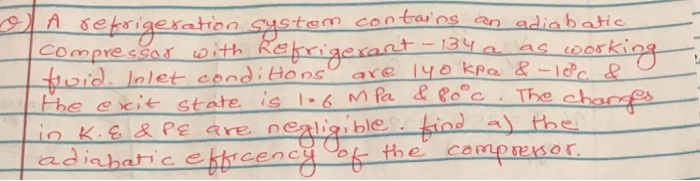 Q) A refrigeration system contains an adiabatic
compressor with Refrigerant-134a as working
fluid. Inlet conditions are 140 kPa & -10°c &
the exit state is 1.6 MPa & 80°c. The changes
in K.E & PE are negligible. find a) the
adiabatic efficency of the compressor.